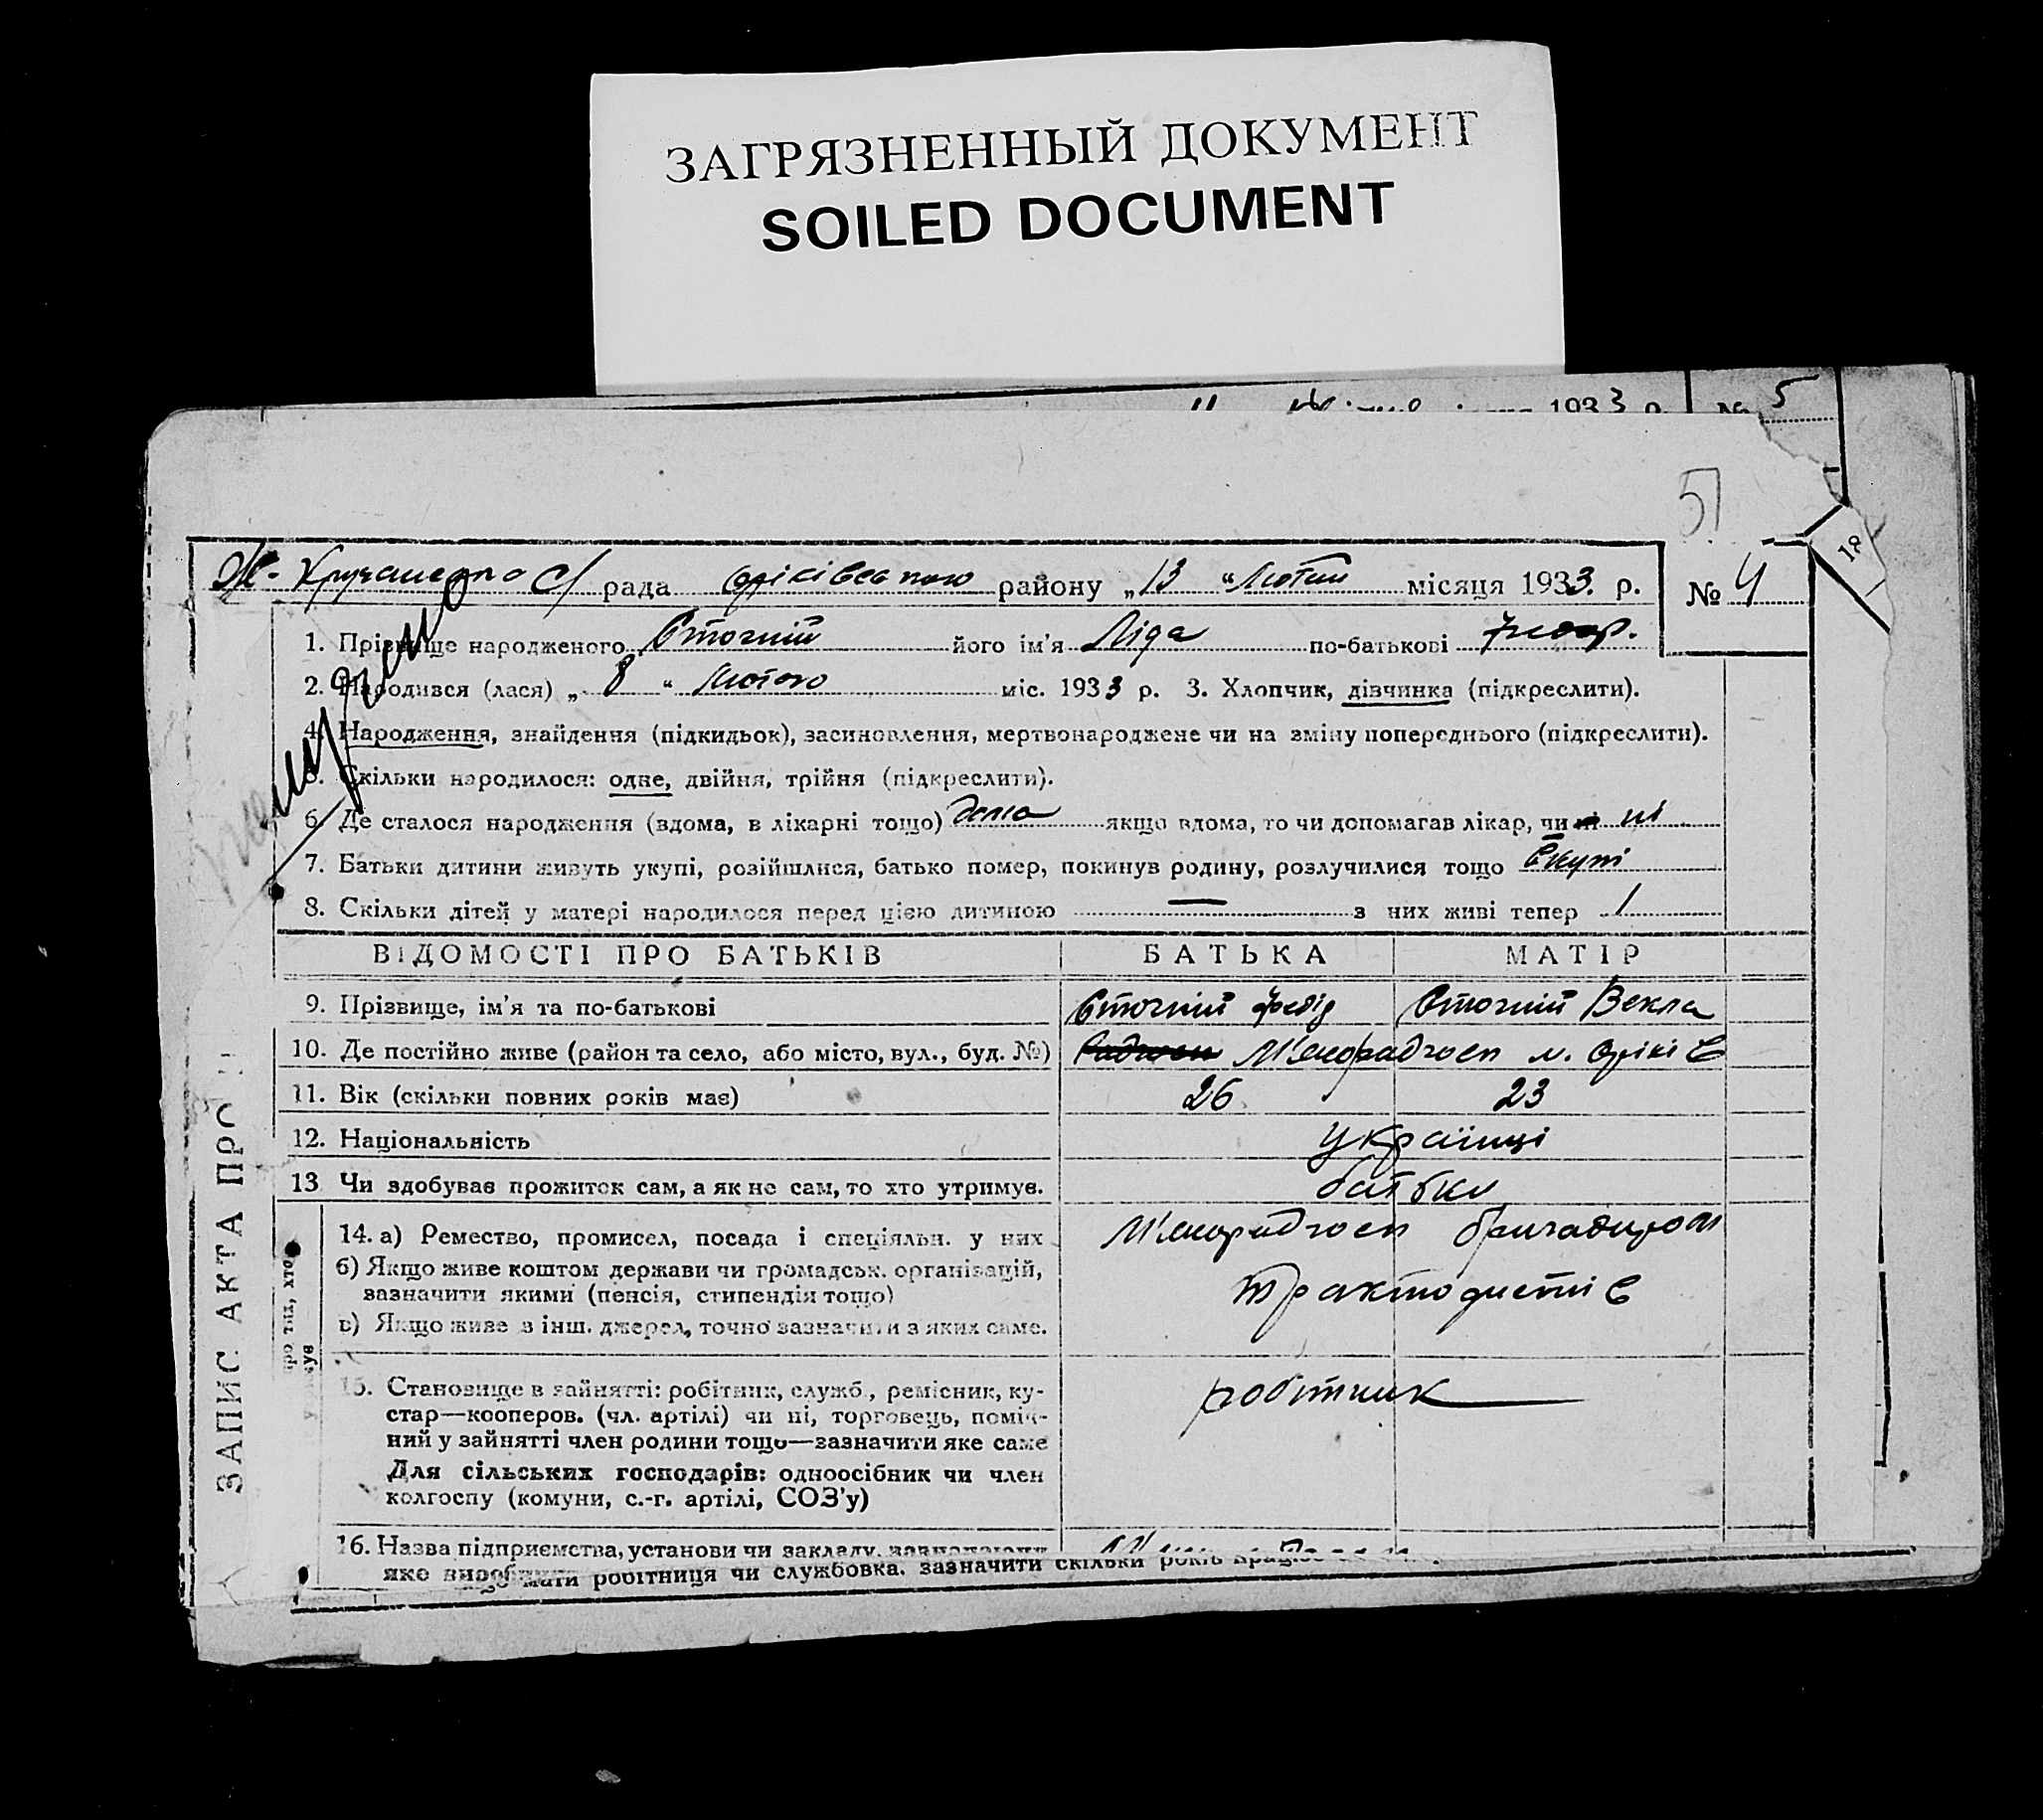 ЗАГРЯЗНЕННЫЙ ДОКУМЕНТ
SOILED DOCUMENT
1933 р. № 5
51
18
рада району „13 “ місяця 1933. р. № 4
1. Прізвище народженого його ім'я Ліда по-батькові
2. Народився (лася) „ 8 “ Лютого міс. 1933 р. 3. Хлопчик, дівчинка (підкреслити).
4. Народження, знайдення (підкидьок), засиновлення, мертвонароджене чи на зміну попереднього (підкреслити).
5. Скільки народилося: одне, двійня, трійня (підкреслити).
6. Де сталося народження (вдома, в лікарні тощо) дома якщо вдома, то чи допомагав лікар, чи ні ні
7. Батьки дитини живуть укупі, розійшлися, батько помер, покинув родину, розлучилися тощо Вкупі
8. Скільки дітей у матері народилося перед цією дитиною — з них живі тепер 1
ВІДОМОСТІ ПРО БАТЬКІВ БАТЬКА МАТІР
9. Прізвище, ім'я та по-батькові Федір Векла
10. Де постійно живе (район та село, або місто, вул., буд. №) М'ясорадгосп м. Оріхів
11. Вік (скільки повних років має) 26 23
12. Національність Українці
13 Чи здобуває прожиток сам, а як не сам, то хто утримує. батьки
14. а) Ремество, промисел, посада і спеціяльн. у них М'ясорадгосп бригадиром
б) Якщо живе коштом держави чи громадськ. організацій,
зазначити якими (пенсія, стипендія тощо) трактористів
в) Якщо живе з інш. джерел, точно зазначити з яких саме.
15. Становище в зайнятті: робітник, служб., ремісник, ку-
стар—кооперов. (чл. артілі) чи ні, торговець, поміч-
ний у зайнятті член родини тощо—зазначити яке саме
робітник
Для сільських господарів: одноосібник чи член
колгоспу (комуни, с.-г. артілі, СОЗ'у)
16. Назва підприємства, установи чи закладу,
яке
мати робітниця чи службовка, зазначити скільки років
ЗАПИС АКТА ПРО